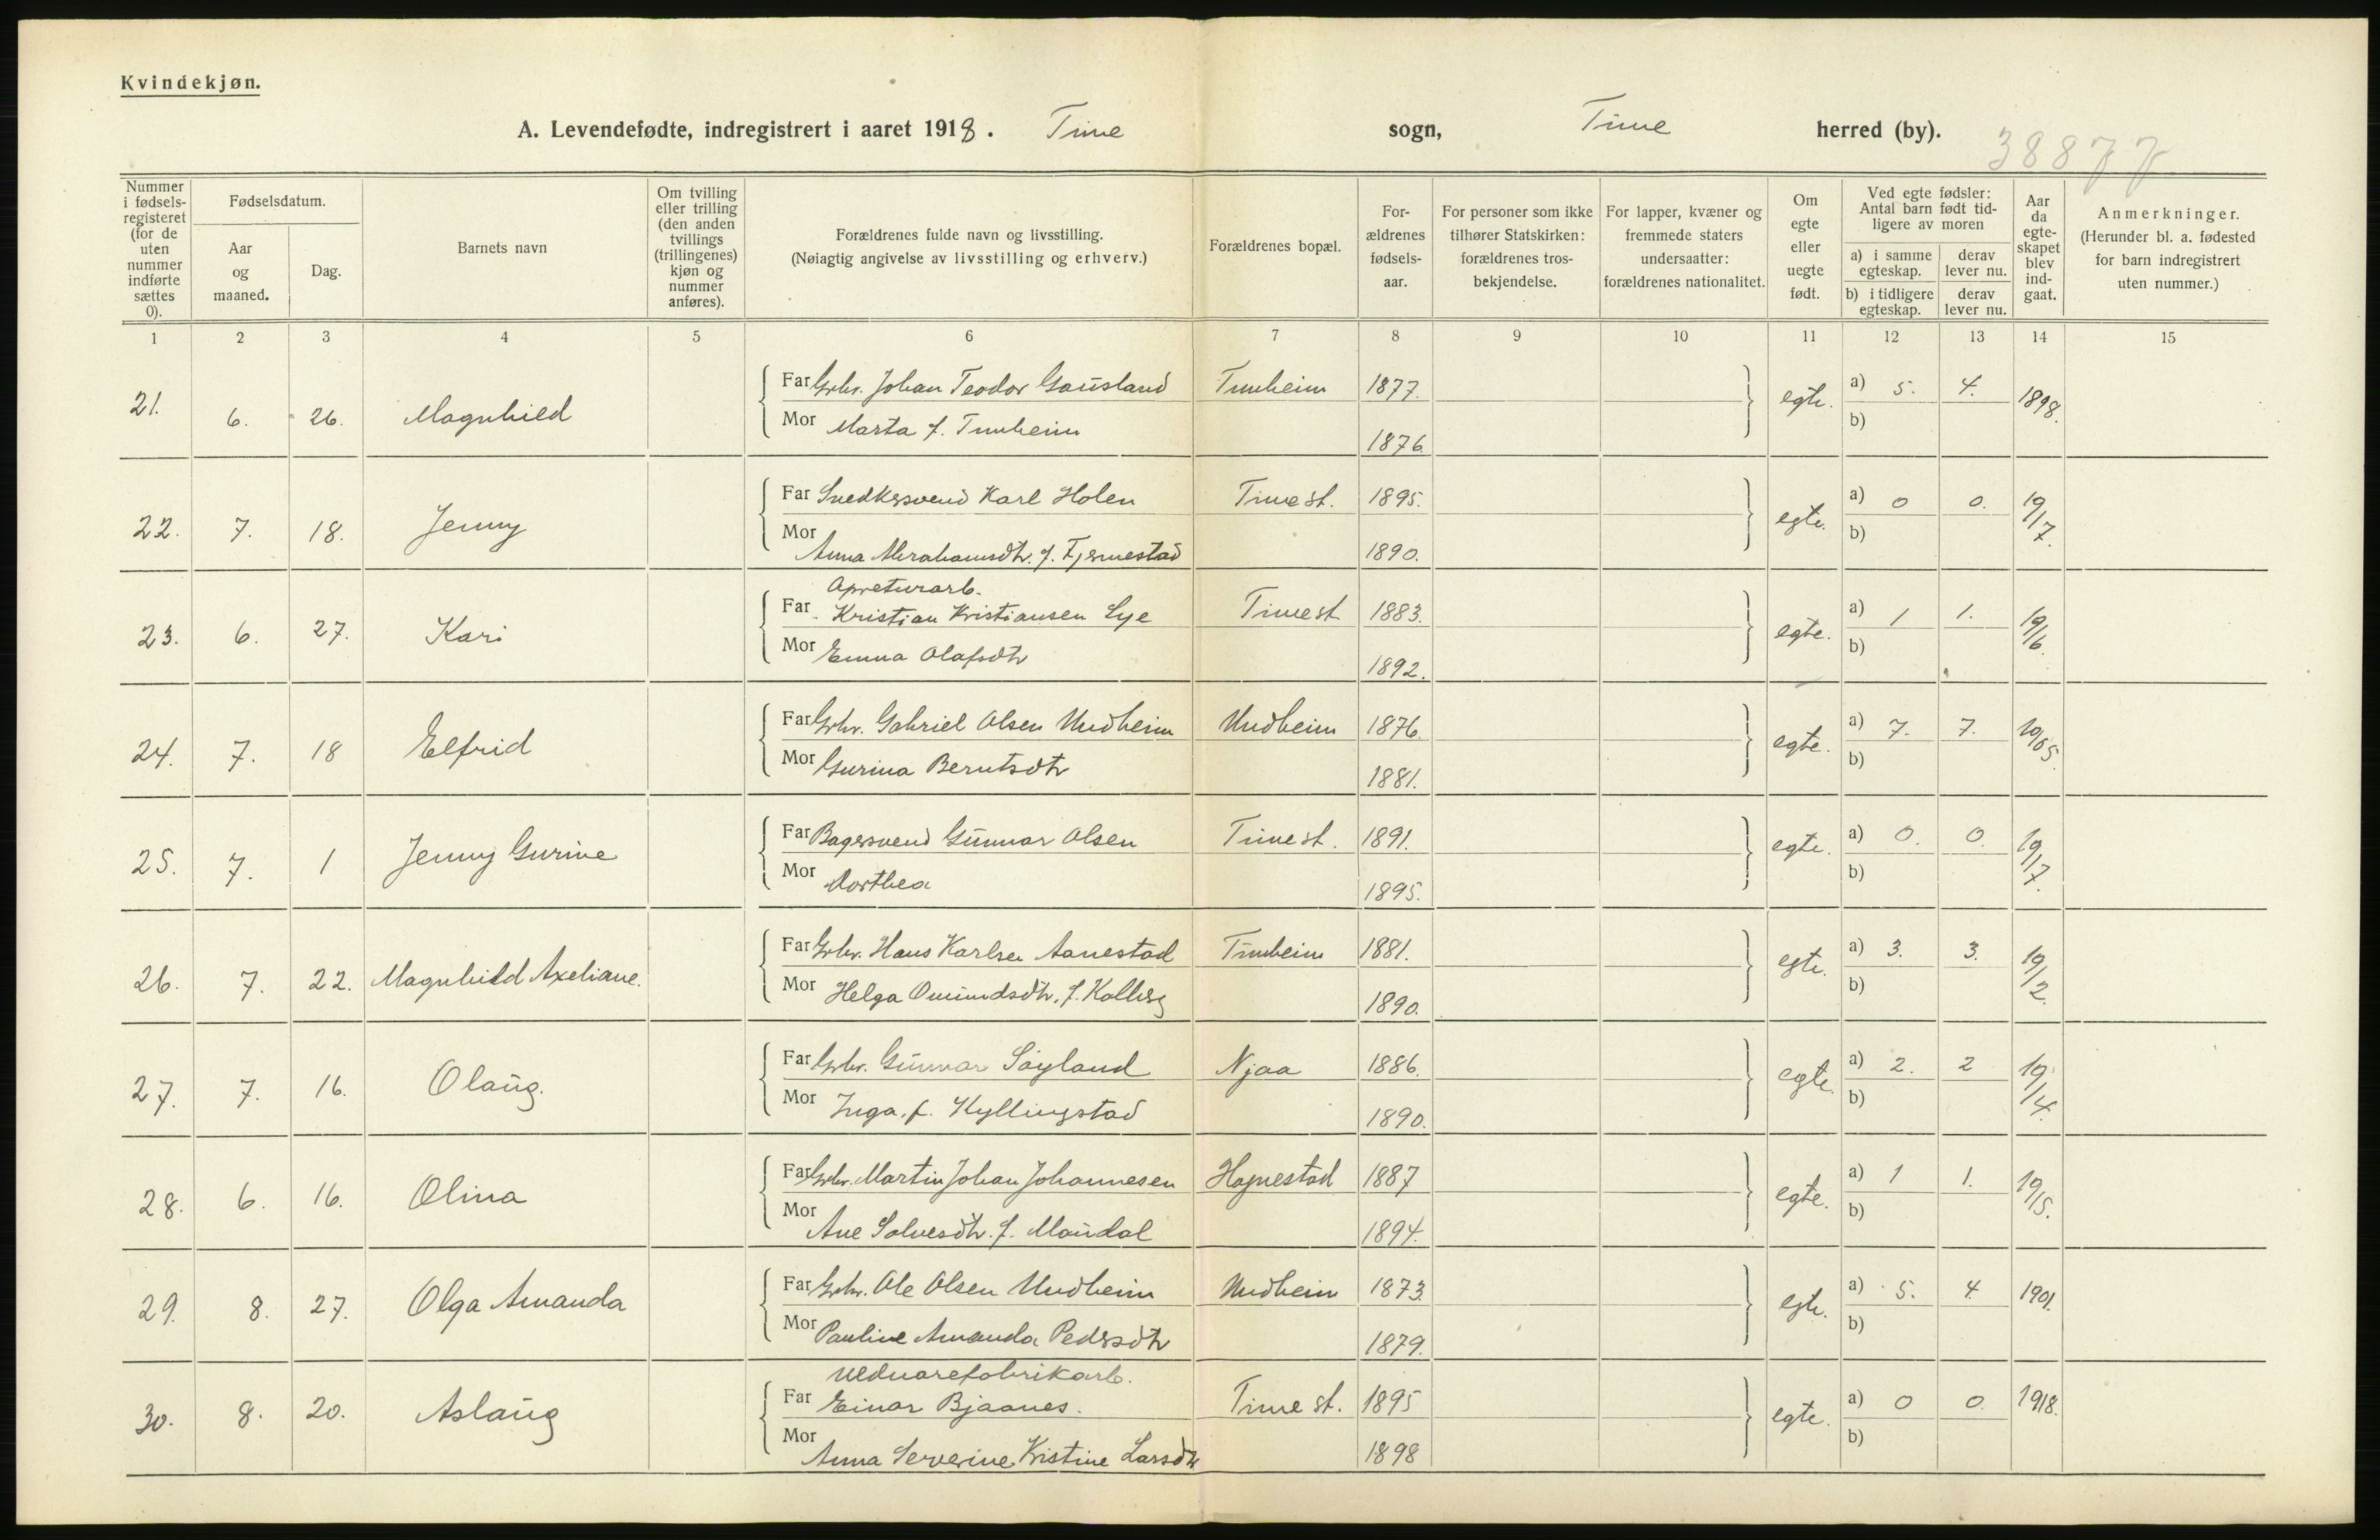 Kvindekjøn.
A. Levendefødte, indregistrert i aaret 1918. Time sogn, Time herred (by).
38877
Nummer i fødselsregisteret (for de uten nummer indførte sættes 0).
Fødselsdatum.
Aar og maaned.
Dag.
Barnets navn
Om tvilling eller trilling (den anden tvillings (trillingenes) kjøn og nummer anføres).
Forældrenes fulde navn og livsstilling.
(Nøiagtig angivelse av livsstilling og erhverv.)
Forældrenes bopæl.
Forældrenes fødselsaar.
For personer som ikke tilhører Statskirken: forældrenes trosbekjendelse.
For lapper, kvæner og fremmede staters undersaatter: forældrenes nationalitet.
Om egte eller uegte født.
Ved egte fødsler: Antal barn født tidligere av moren
a) i samme egteskap. derav lever nu.
b) i tidligere egteskap. derav lever nu.
Aar da egteskapet blev indgaat.
Anmerkninger.
(Herunder bl. a. fødested for barn indregistrert uten nummer.)
1 2 3 4 5 6 7 8 9 10 11 12 13 14 15
21. 6. 26. Magnhild Far Grbr. Johan Teodor Gausland Tunheim 1877. egte. a) 5. 4. 1898.
Mor Marta f. Tunheim 1876. b)
22. 7. 18. Jenny Far Snedkersvend Karl Holen Time st. 1895. egte. a) 0 0. 19/17.
Mor Anna Abrahamsdtr. f. Fjermestad 1890. b)
Apreturarb.
23. 6. 27. Kari Far Kristian Kristiansen Lye Time st 1883. egte. a) 1 1. 19/6.
Mor Emma Olafsdtr 1892. b)
24. 7. 18 Elfrid Far Grbr. Gabriel Olsen Undheim Undheim 1876. egte. a) 7. 7. 19/05.
Mor Gurina Berntsdtr 1881. b)
25. 7. 1 Jenny Gurine Far Bagersvend Gunnar Olsen Time st. 1891. egte. a) 0. 0. 19/17.
Mor Dorthea 1895. b)
26. 7. 22. Magnhild Axeliane. Far Grbr. Hans Karlsen Aanestad Tunheim 1881. egte. a) 3. 3. 19/12.
Mor Helga Omundsdtr. f. Kalberg 1890. b)
27. 7. 16. Olaug. Far Grbr. Gunnar Søyland Njaa 1886. egte. a) 2. 2 19/14.
Mor Inga, f. Kyllingstad 1890. b)
28. 6. 16. Olina Far Grbr. Martin Johan Johannesen Hognestad 1887 egte. a) 1 1. 19/15.
Mor Ane Salvesdtr. f. Maudal 1894. b)
29. 8. 27. Olga Amanda Far Grbr. Ole Olsen Undheim Undheim 1873. egte. a) 5. 4. 1901.
Mor Pauline Amanda Pedersdtr 1879. b)
Uldvarefabrikarb.
30. 8. 20. Aslaug Far Einar Bjaanes. Time st. 1895 egte. a) 0 0. 1918.
Mor Anna Serverine Kristine Larsdtr 1898 b)